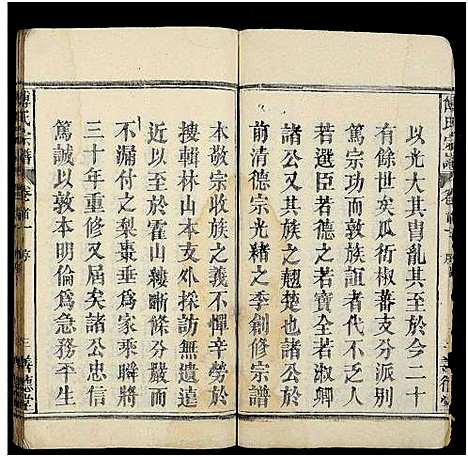 以光大其冑亂其至於今二十
有餘世矣瓜衍椒蕃支分派別
敬宗功而敦族誼者代不乏人
若選臣若德之若寶全若淑卿
諸公者
前清德宗光緒之季創修宗譜
本敬宗收族之義不憚辛勞於
搜輯林山本支外採訪無遺遠
近以至於霍山縷晰條分嚴而
不漏付之梨棗垂為家乘瞬將
三十年重修又屆矣諸公忠信
篤誠以敦本明倫為急務平生
傅氏宗譜
卷首一
序
善德堂